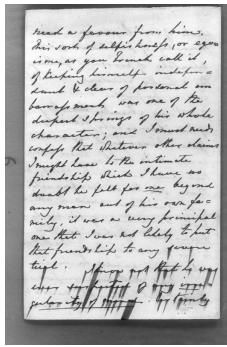 need a favour from him.
This sort of selfishness, or ego
ism, as you French call it,
of keeping himself indepen =
dent & clear of personal em
barrassment was one of the
deepest springs of his whole
character; and I must needs
confess that whatever other claims
I might have to the intimate
friendship which I have no
doubt he felt for me beyond
any man out of his own fa =
mily, it was a very principal
one that I was not likely to put
that friendship to any severe
trial.
that by any